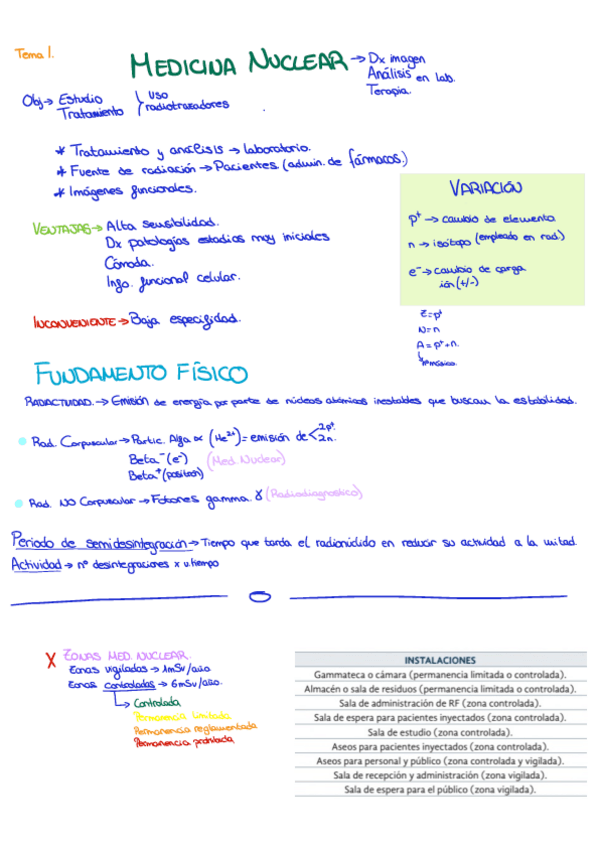 Tema 1.
MEDICINA NUCLEAR → Dx imagen
Análisis en lab.
Terapia.
Obj → Estudio
Tratamiento
uso
radiotrazadores
* Tratamiento y análisis → laboratorio.
* Fuente de radiación → Pacientes (admin. de fármacos.)
* Imágenes funcionales.
VENTAJAS → Alta sensibilidad.
Dx patologías estadios muy iniciales
Cómoda.
Info. funcional celular.
INCONVENIENTE → Baja especifidad.
VARIACIÓN
p⁺ → cambio de elemento
n → isótopo (empleado en rad.)
e⁻ → cambio de carga
ión (+/-)
Z = p⁺
N = n
A = p⁺ + n.
nº másico.
FUNDAMENTO FÍSICO
RADIACTIVIDAD. → Emisión de energía por parte de núcleos atómicos inestables que buscan la estabilidad.
Rad. Corpuscular → Partic. Alfa ∝ (He²⁺) = emisión de < 2p⁺
2n.
Beta⁻ (e⁻) (Med. Nuclear)
Beta⁺ (positrón)
Rad. NO Corpuscular → Fotones gamma. γ (Radiodiagnostico)
Periodo de semidesintegración → Tiempo que tarda el radionúclido en reducir su actividad a la mitad.
Actividad → nº desintegraciones x u.tiempo
X ZONAS MED. NUCLEAR.
Zonas vigiladas → 1mSv/año.
Zonas controladas → 6mSv/año.
Controlada
Permanencia limitada
Permanencia reglamentada
Permanencia prohibida
INSTALACIONES
Gammateca o cámara (permanencia limitada o controlada).
Almacén o sala de residuos (permanencia limitada o controlada).
Sala de administración de RF (zona controlada).
Sala de espera para pacientes inyectados (zona controlada).
Sala de estudio (zona controlada).
Aseos para pacientes inyectados (zona controlada).
Aseos para personal y público (zona controlada y vigilada).
Sala de recepción y administración (zona vigilada).
Sala de espera para el público (zona vigilada).